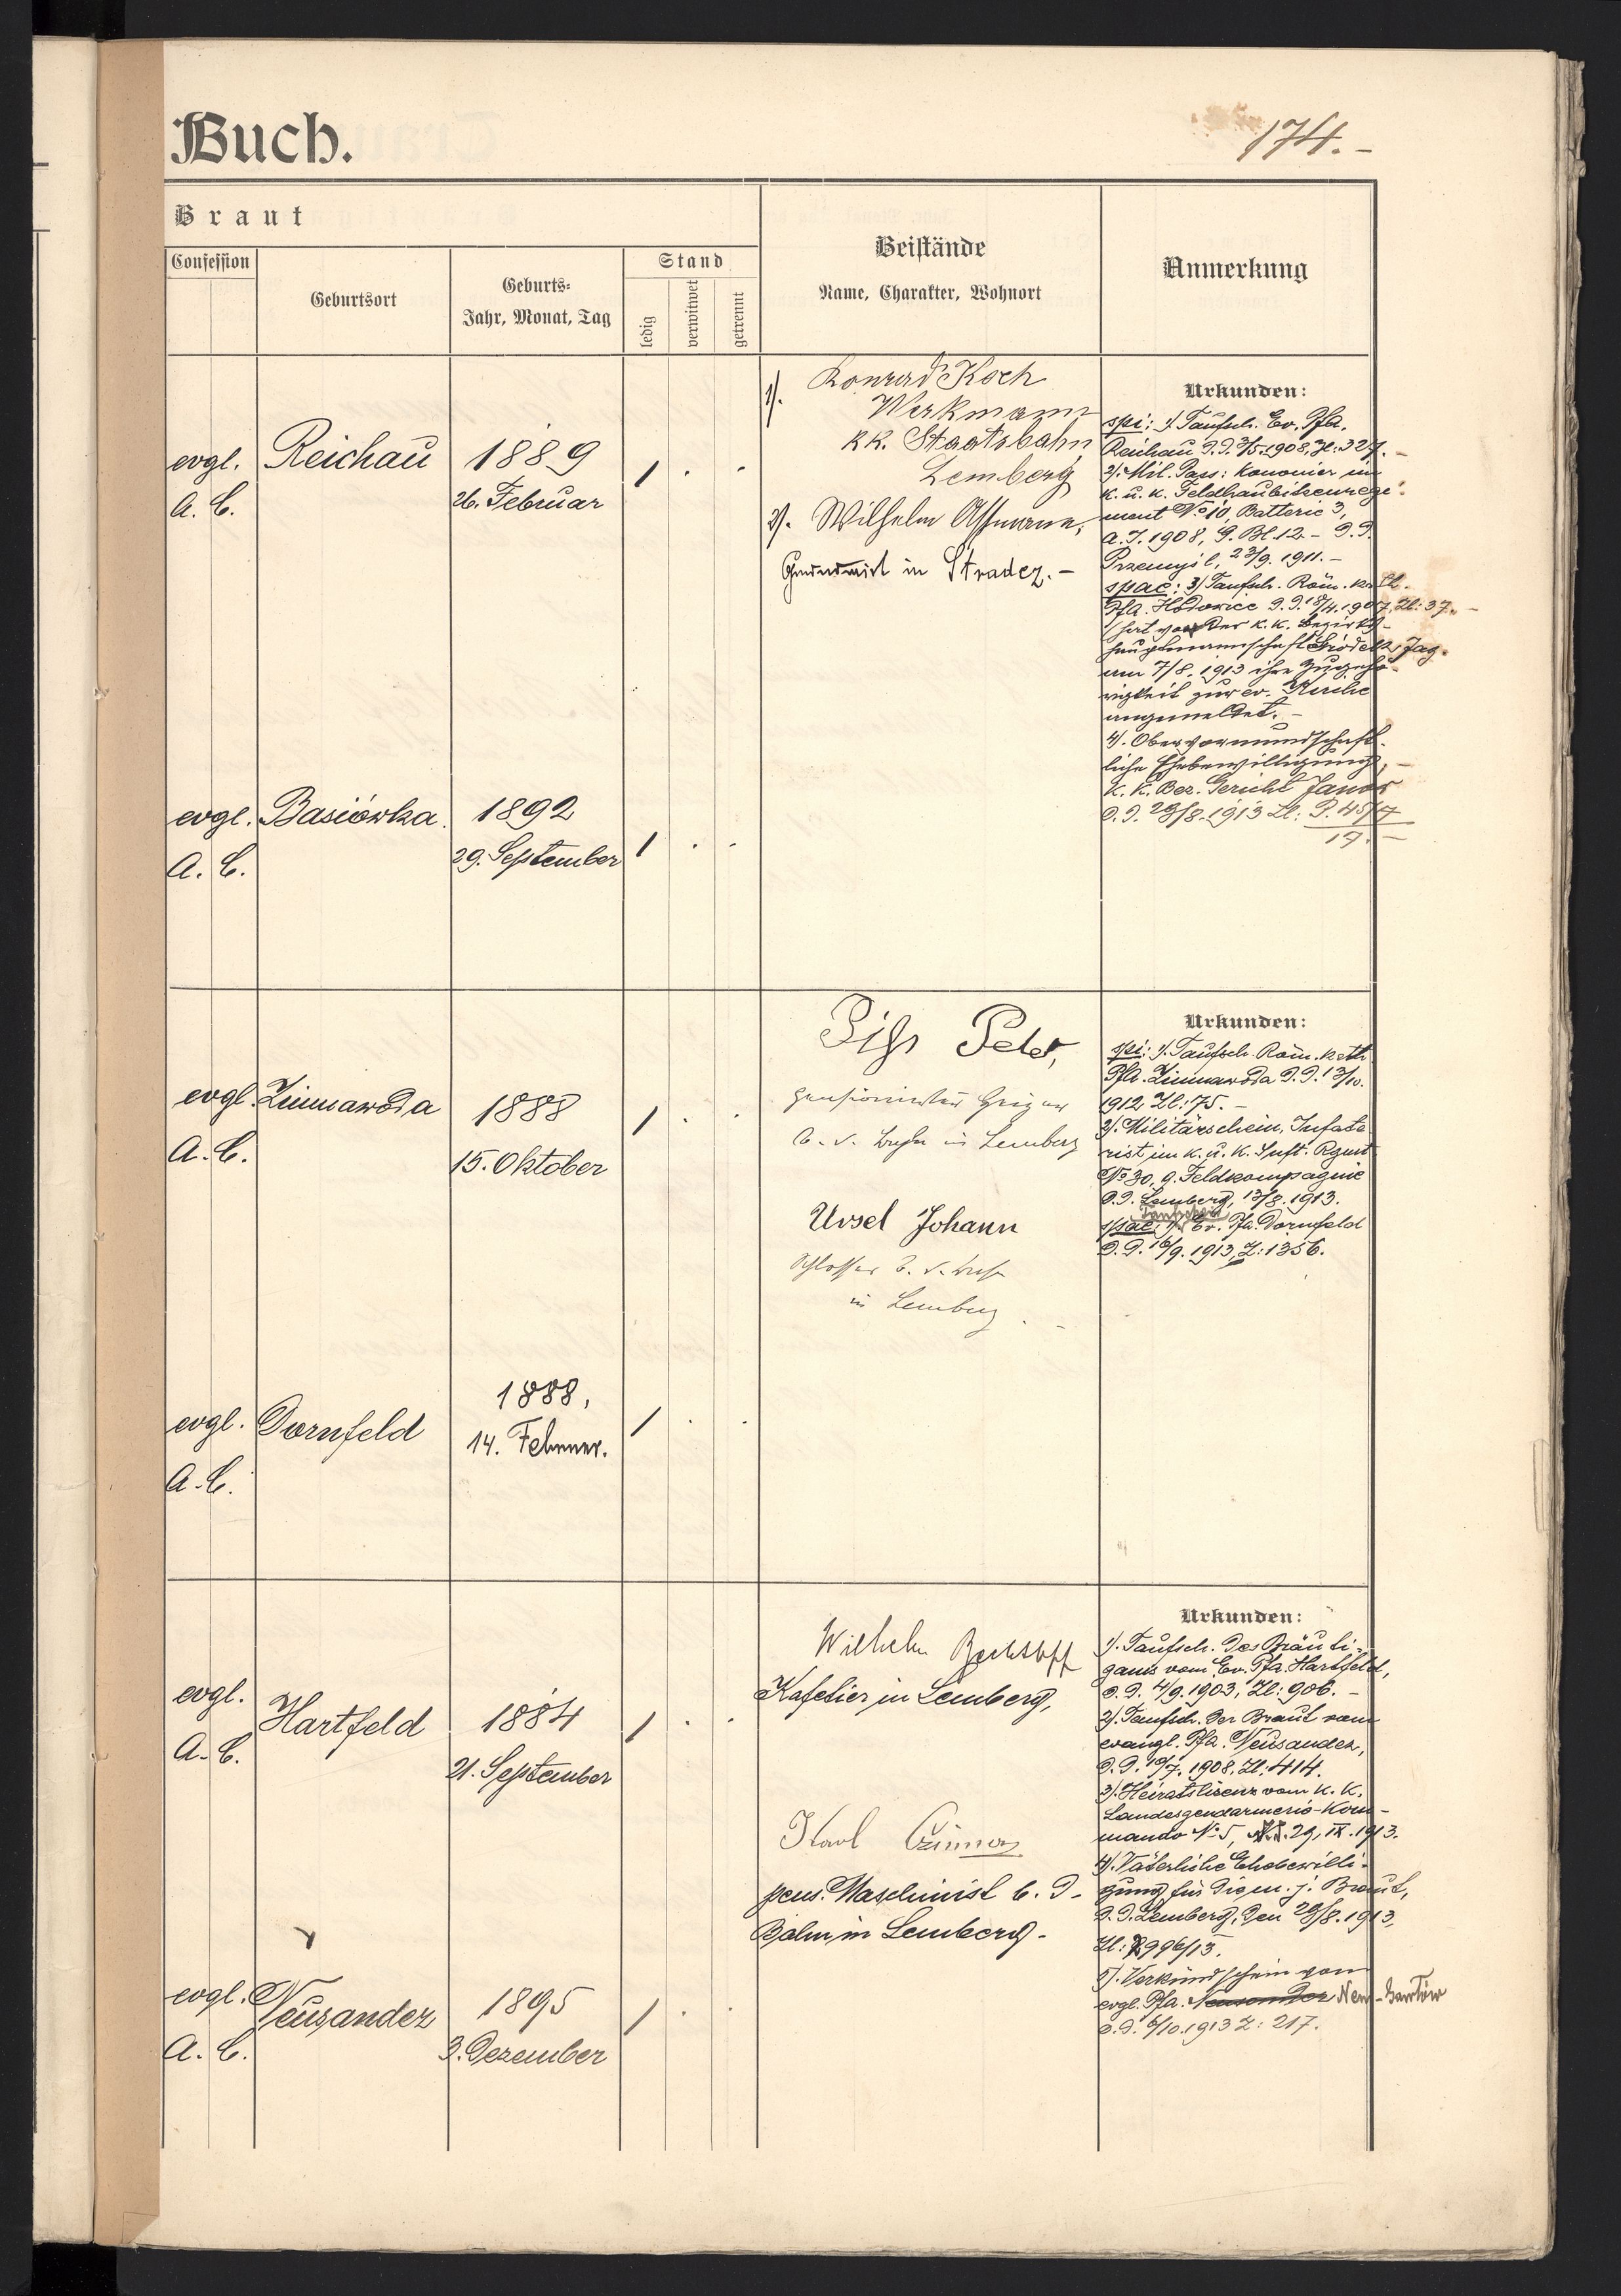 Buch.
174. -
Braut
Beistände
Name, Charakter, Wohnort
Anmerkung
Confession
Geburtsort
Geburts-
Jahr, Monat, Tag
Stand
ledig
verwitwet
getrennt
evgl.
A. C.
Reichau
1889
26. Februar
1 . .
1). Konrad Koch
Werkmann
kk. Staatsbahn
Lemberg
2). Wilhelm Assmann,
in Stradcz. -
Urkunden:
spi: 1) Taufsch. Ev. Pfa.
Reichau d. d. 3/5. 1908, Zl: 327. -
2). Mil. Pass: Kanonier im
k. u. k. Feldhaubitzenregi-
ment No 10, Batterie 3,
a. J. 1908, G. Bl. 12 - d. d.
Przemysl, 23/9. 1911. -
spae: 3) Taufsch. Röm. kath.
Pfa. Hodowice d. d. 18/4. 1907, Zl: 37. -
(hat vor der k. k. Bezirks-
hauptmannschaft Gródek Jag.
am 7/8. 1913 ihre Zugehö-
rigkeit zur ev. Kirche
angemeldet. -
4). Obervormundschaft-
liche Ehebewilligung, -
k. k. Bez. Gericht Janow
d. d. 29/8. 1913 Zl: P. 45/7
17. -
evgl.
A. C.
Basiówka
1892
29. September
1 . .
evgl.
A. C.
Zimnawoda
1888
15. Oktober
1 . .
Peter,
pensionierter
in Lemberg
Ursel Johann
Schlosser
in Lemberg. -
Urkunden:
spi: 1). Taufsch. Röm. kath
Pfa. Zimnawoda d. d. 13/10.
1912 Zl: 75. -
2). Militärschein, Infante
rist im k. u. k. Inft. Rgmt
No 30, 9. Feldkompagnie
d. d. Lemberg, 13/8. 1913.
Taufschein
spae: 1) Ev. Pfa. Dornfeld
d. d. 16/9. 1913, Z: 1356.
evgl.
A. C.
Dornfeld
1888,
14. Februar.
1 . .
evgl.
A. C.
Hartfeld
1884
21. September
1 . .
Wilhelm
Kafetier in Lemberg,
Karl
pens. Maschinist b. d.
Bahn in Lemberg -
Urkunden:
1). Taufsch. des Bräuti-
gams vom Ev. Pfa. Hartfeld,
d. d. 4/9. 1903, Zl: 906. -
2). Taufsch. der Braut vom
evangl. Pfa. Neusandez,
d. d. 10/7. 1908, Zl: 414.
3). Heiratslizenz vom k. k.
Landesgendarmerie-Kom-
mando No 5, 29. IX. 1913.
4). Väterliche Ehebewilli-
gung für die m. j. Braut,
d. d. Lemberg, den 29/8. 1913,
Zl: 996/13.
5). Verkündschein vom
evgl. Pfa. Neusandez Neu-Gawłów
d. d. 6/10. 1913 Z: 217.
evgl.
A. C.
Neusandez
1895
3. Dezember
1 . .